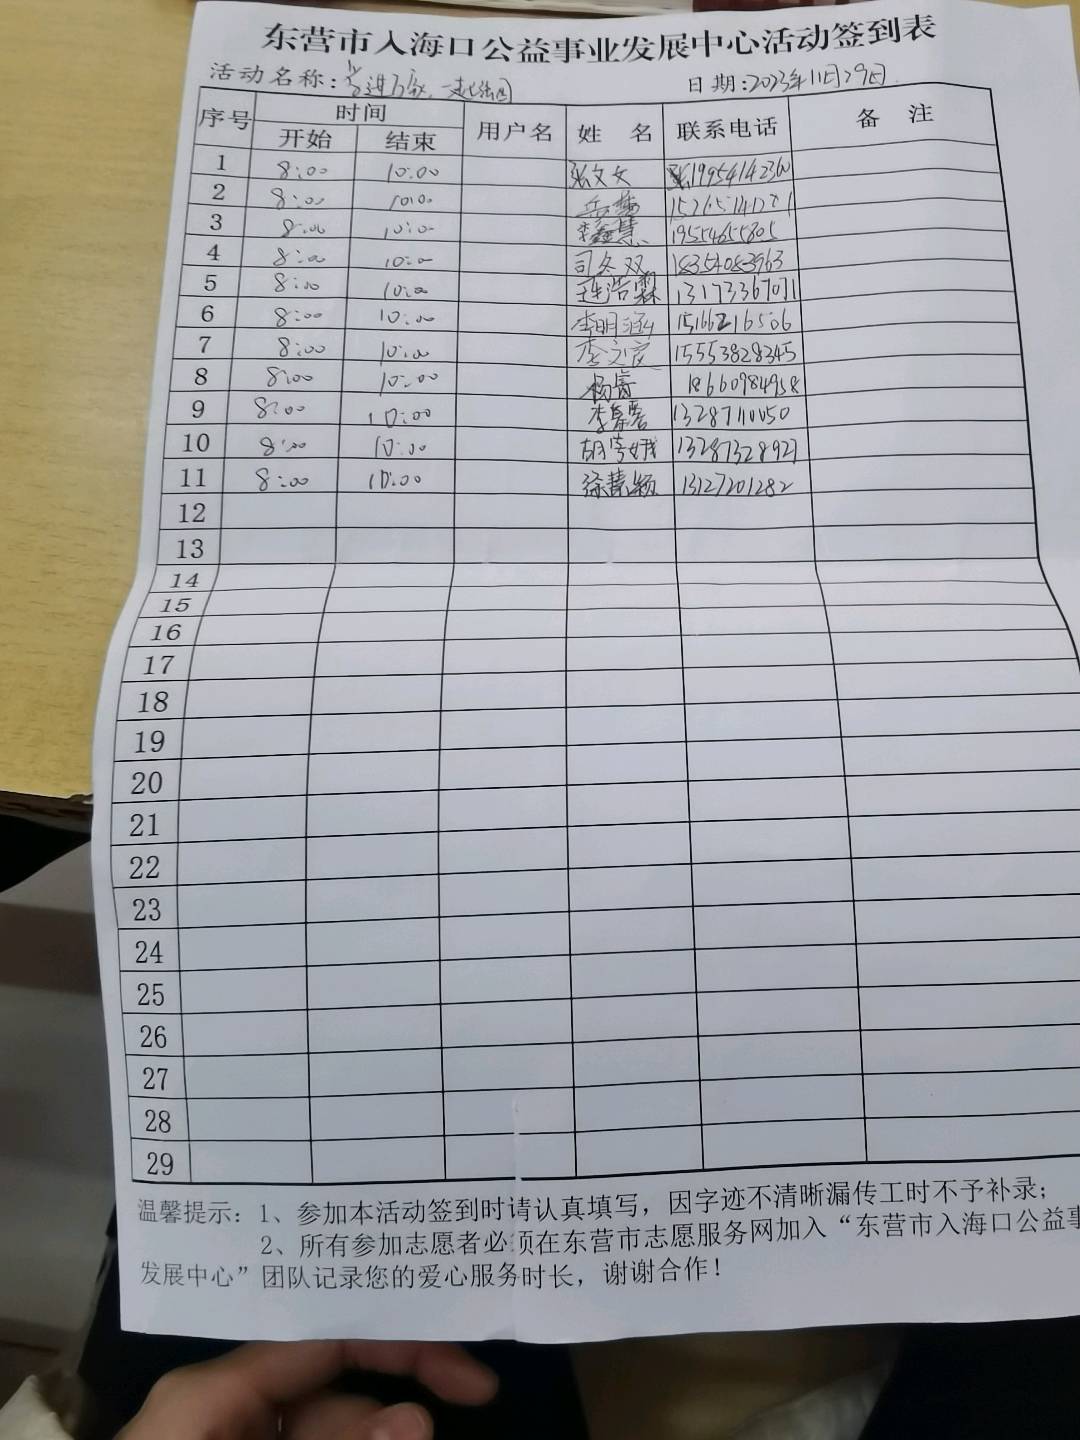 东营市入海口公益事业发展中心活动签到表
活动名称: 日期:2023年11月29日
序号 时间 用户名 姓名 联系电话 备注
开始 结束
1 8:00 10:00 张文女
2 8:00 10:00
3 8:00 10:00 李鑫慧 19554655805
4 8:00 10:00 司冬双 18354083963
5 8:00 10:00 13173367071
6 8:00 10:00 李明涵 15166216506
7 8:00 10:00 李文庆 15553828345
8 8:00 10:00 杨青 18660984958
9 8:00 10:00 13287110050
10 8:00 10:00 13287328927
11 8:00 10:00 徐慧颖 13127201282
12
13
14
15
16
17
18
19
20
21
22
23
24
25
26
27
28
29
温馨提示：1、参加本活动签到时请认真填写，因字迹不清晰漏传工时不予补录；
2、所有参加志愿者必须在东营市志愿服务网加入“东营市入海口公益事
发展中心”团队记录您的爱心服务时长，谢谢合作！